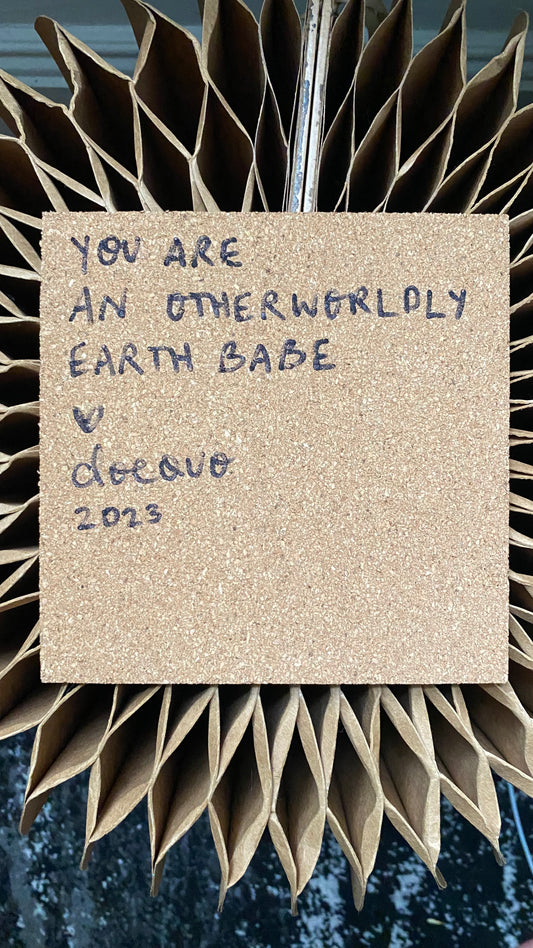 YOU ARE
AN OTHERWORLDLY
EARTH BABE
♥
docquo
2023